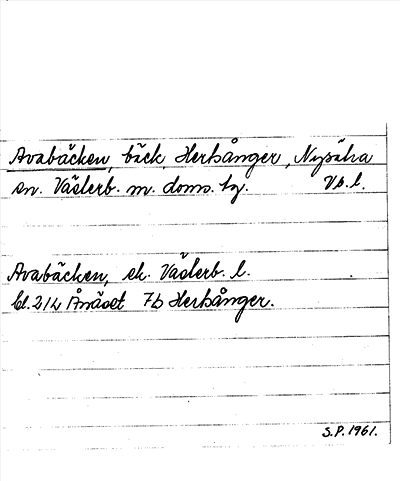 Avabäcken, bäck, Hertsånger, Nysätra
sn. Västerb. m. doms. tg. Vb. l.
Avabäcken, ek. Västerb. l.
bl. 214 Ånäset 7b Hertsånger.
S.P. 1961.